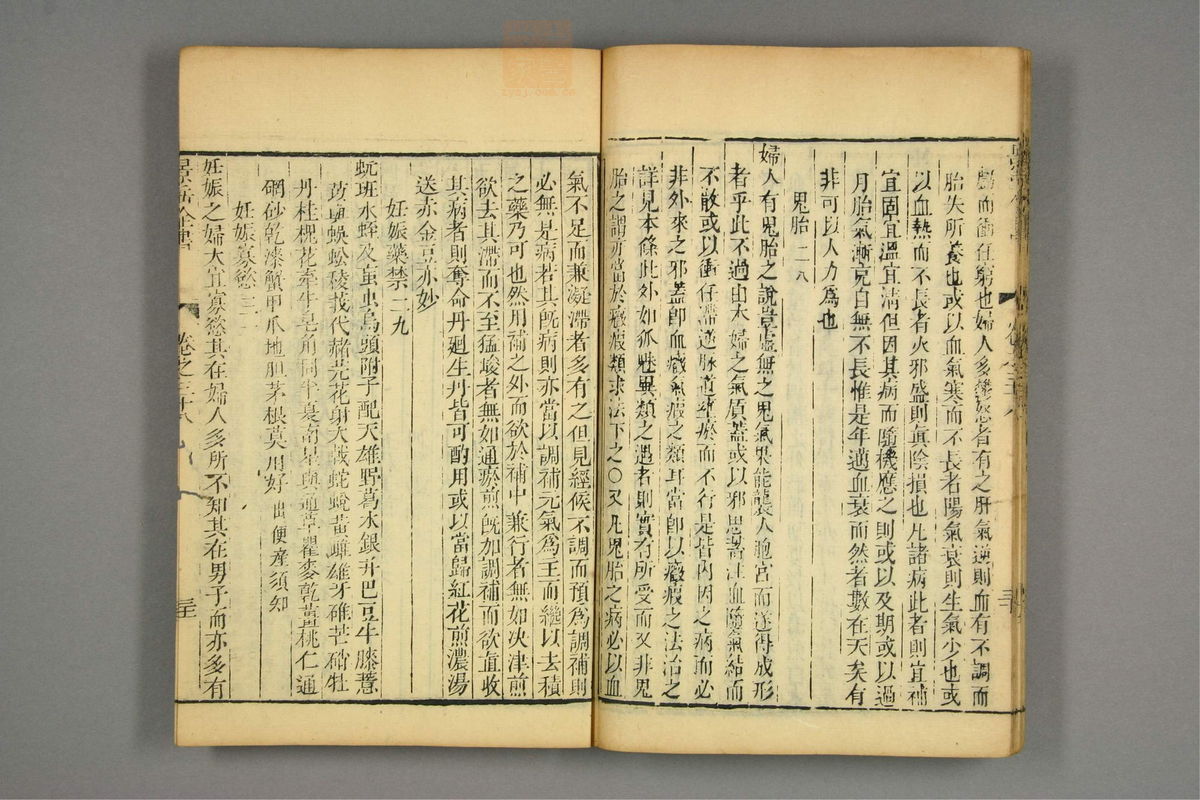 而衝任窮也婦人多鬱怒者有之肝氣逆則血有不調而
胎失所養也或以血氣寒而不長者陽氣衰則生氣少也或
以血熱而不長者火邪盛則真陰損也凡諸病此者則宜補
宜固宜溫宜清但因其病而隨機應之則或以及期或以過
月胎氣漸充自無不長惟是年邁血衰而然者數在天矣有
非可以人力爲也
鬼胎 二八
婦人有鬼胎之說豈虛無之鬼氣果能襲人胞宮而遂得成形
者乎此不過由本婦之氣質蓋或以邪思蓄注血隨氣結而
不散或以衝任滯逆脉道壅瘀而不行是皆內因之病而必
非外來之邪蓋卽血癥氣瘕之類耳當卽以癥瘕之法治之
詳見本條此外如狐魅異類之遇者則實有所受而又非鬼
胎之謂亦當於癥瘕類求法下之○又凡鬼胎之病必以血
氣不足而兼凝滯者多有之但見經候不調而預爲調補則
必無是病若其旣病則亦當以調補元氣爲主而繼以去積
之藥乃可也然用補之外而欲於補中兼行者無如決津煎
欲去其滯而不至猛峻者無如通瘀煎旣加調補而欲直收
其病者則奪命丹廻生丹皆可酌用或以當歸紅花煎濃湯
送赤金豆亦妙
妊娠藥禁二九
蚖班水蛭及虻虫烏頭附子配天雄野葛水銀并巴豆牛膝薏
苡與蜈蚣稜莪代赭芫花射大戟蛇蛻黃雌雄牙硝芒硝牡
丹桂槐花牽牛皂角同半夏南星與通草瞿麥乾薑桃仁通
硇砂乾漆蟹甲爪地胆茅根莫用好 出便產須知
妊娠寡慾 三
妊娠之婦大宜寡慾其在婦人多所不知其在男子而亦多有
景岳全書 卷之三十八 三十